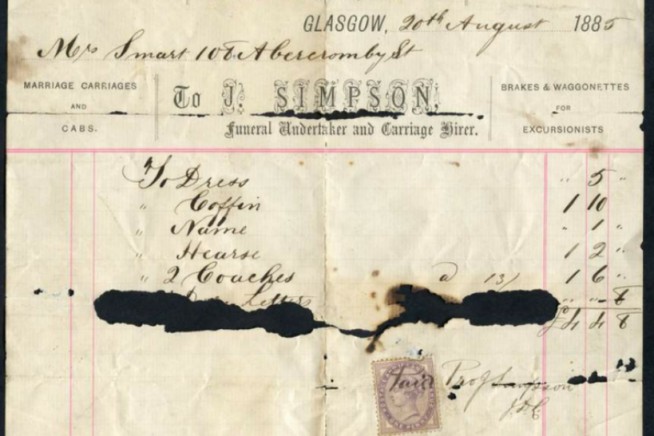 GLASGOW, 20th August 1885
Mrs Smart 108 Abercromby St
MARRIAGE CARRIAGES
AND
CABS.
To J. SIMPSON,
Funeral Undertaker and Carriage Hirer.
BRAKES & WAGGONETTES
FOR
EXCURSIONISTS
To Dress " 5 "
" Coffin 1 10
" Name " 1 "
" Hearse 1 2 "
" 2 Coaches a 13/ 1 6 "
Letters " " 8
£4 4 8
Paid Pro J Simpson